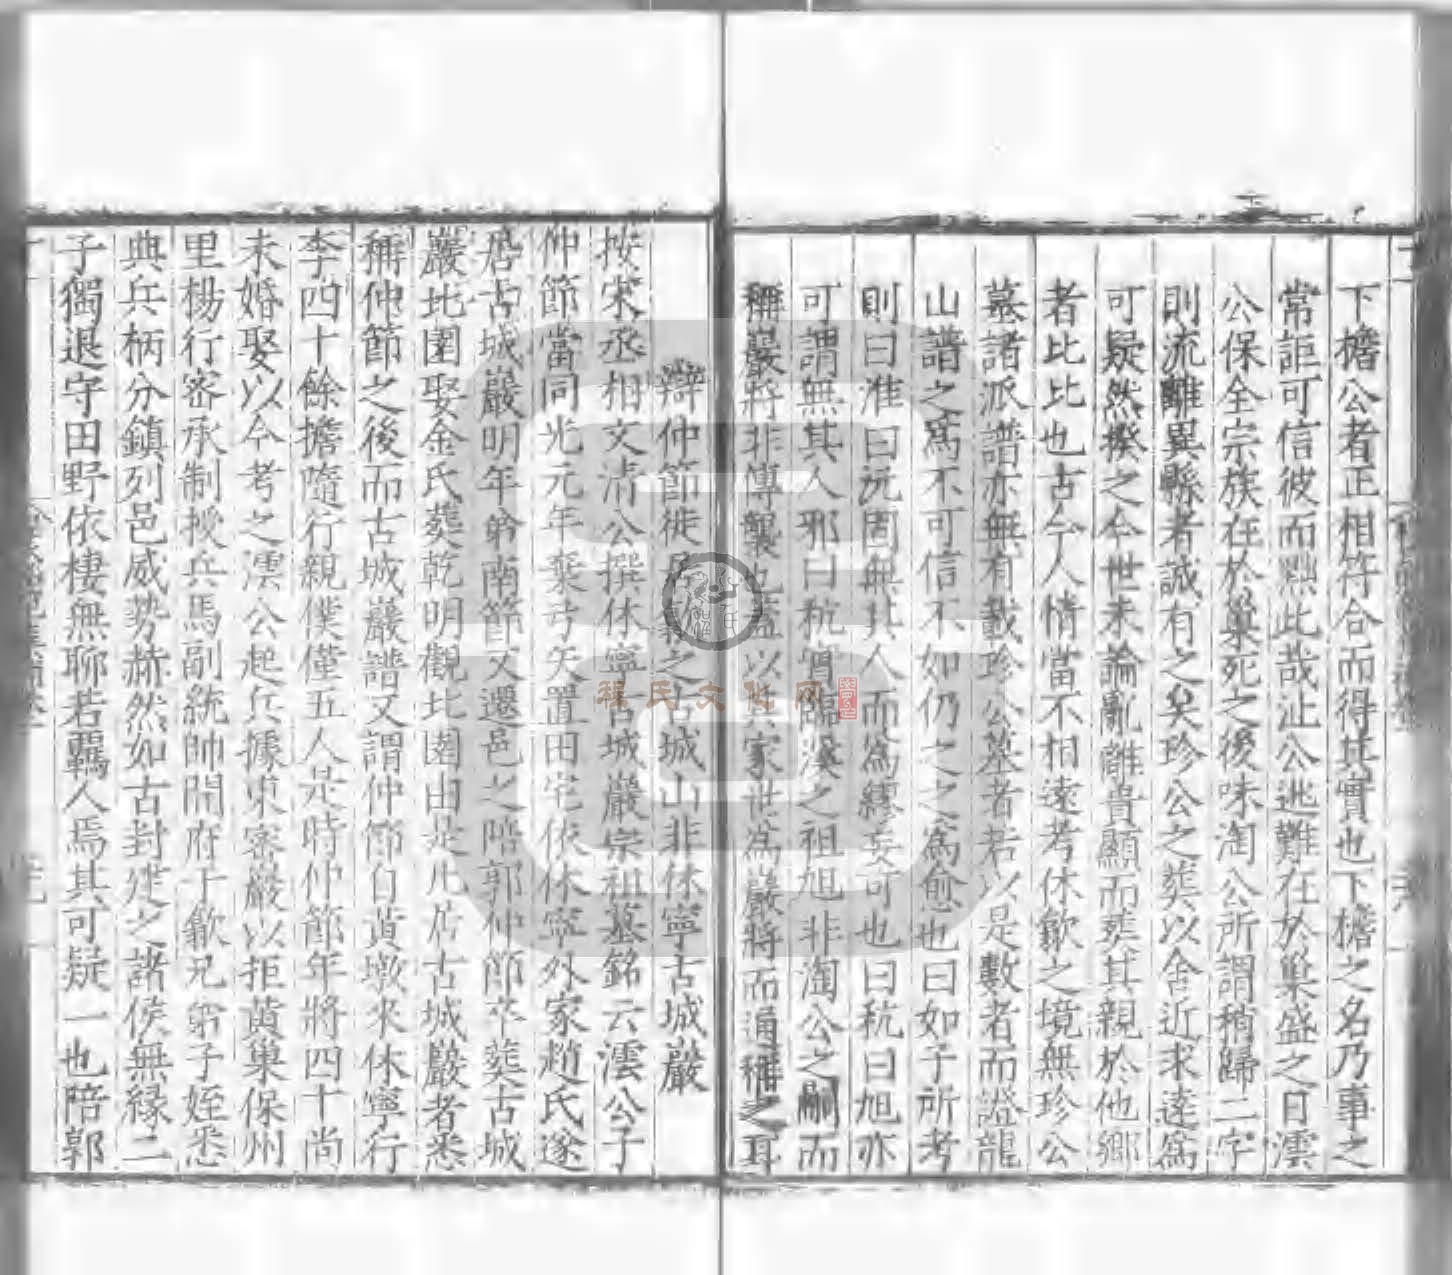 下檐公者正相符合而得其實也下檐之名乃事之
常詎可信彼而黜此哉止公逃難在於巢盛之日澐
公保全宗族在於巢死之後味淘公所謂稍歸二字
則流離異縣者誠有之矣珍公之葬以舍近求遠爲
可疑然揆之今世未論亂離貴顯而葬其親於他鄉
者比比也古今人情當不相遠考休歙之境無珍公
墓諸派譜亦無有載珍公墓者若以是數者而證龍
山譜之爲不可信不如仍之之爲愈也曰如子所考
則曰淮曰沅固無其人而爲繆妄可也曰秔曰旭亦
可謂無其人邪曰秔胃臨溪之祖旭非淘公之嗣而
稱巖將非傳襲也蓋以其家世爲巖將而通稱之耳
辯仲節徙居 之古城山非休寧古城巖
按宋丞相文清公撰休寧古城巖宗祖墓銘云澐公子
仲節當同光元年棄弓矢置田宅依休寧外家趙氏遂
居古城巖明年弟南節又遷邑之陪郭仲節卒葬古城
巖北園娶金氏葬乾明觀北園由是凡居古城巖者悉
稱仲節之後而古城巖譜又謂仲節自黃墩來休寧行
李四十餘擔隨行親僕僅五人是時仲節年將四十尚
未婚娶以今考之澐公起兵據東密巖以拒黃巢保州
里楊行密承制授兵馬副統帥開府于歙兄弟子姪悉
典兵柄分鎮列邑威势赫然如古封建之諸侯無緣二
子獨退守田野依棲無聊若羈人焉其可疑一也陪郭
程氏文化网